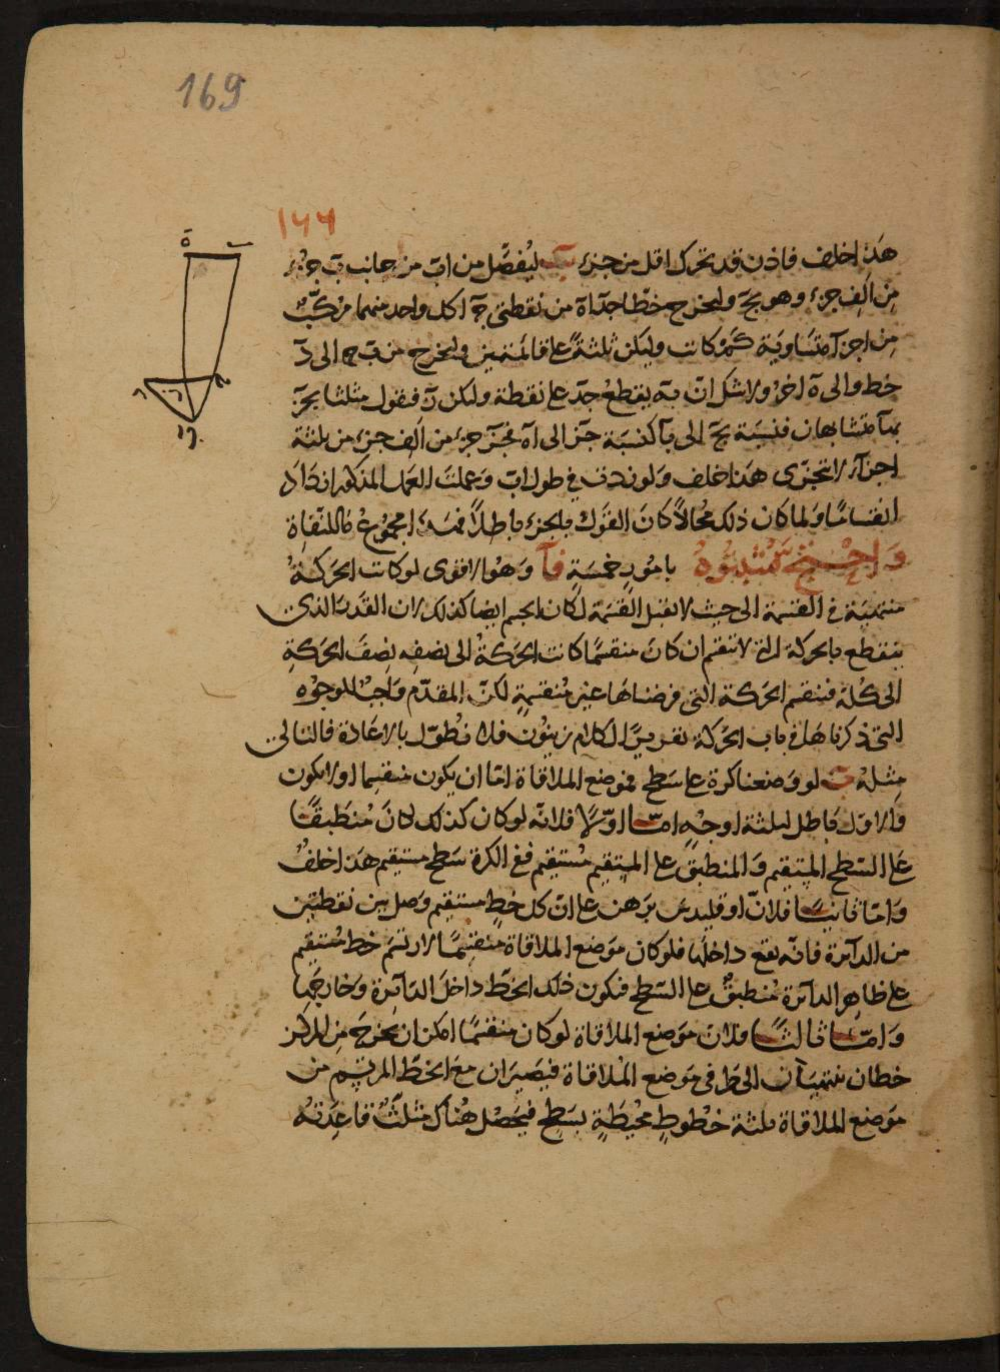 169
١٤٤
هذا خلف فاذن قد تحرك اقل من جزء يب ليفصل من اب من جانب ب جزء
من الف جزء وهو بج وليخرج خطا جد اة من نقطتى ج ا كل واحد منهما مركب
من اجزآ متساوية كم كانت وليكن ثلثة على قائمتين وليخرج من ب ه الى د
خط والى ة اخر ولا شك ان بة يقطع جد على نقطة ولكن ز فنقول مثلثا بجز
باة متشابهان فنسبة بج الى با كنسبة جز الى اة فجز جزء من الف جزء من ثلثة
اجزآء لا تتجزى هذا خلف ولو زدت فى طول اب وعملت العمل المذكور ازداد
انقساما ولما كان ذلك محالا كان القول بالجزء باطلا فهذا مجموع ما للنفاة
واحتج مثبتوه بامور خمسة فآ وهو الاقوى لو كانت الحركة
منتهية فى القسمة الى حيث لا تقبل القسمة لكان الجسم ايضا كذلك لان القدر الذى
ينقطع بالحركة التى لا تنقسم ان كان منقسما كانت الحركة الى نصفه نصف الحركة
الى كله فتنقسم الحركة التى فرضناها غير منقسمة لكن المقدم واجب للوجوه
التى ذكرناها فى باب الحركة لزينون فلا نطول بالاعادة فالتالى
مثله ب لو وضعنا كرة على سطح فموضع الملاقاة اما ان يكون منقسما او لا يكون
والاول باطل لثلثة اوجه اما اولا فلانه لو كان كذلك لكان منطبقا
على السطح المستقيم والمنطبق على المستقيم مستقيم ففى الكرة سطح مستقيم هذا خلف
واما ثانيا فلان اوقليدس برهن على ان كل خط مستقيم وصل بين نقطتين
من الدائرة فانه يقع داخلها فلو كان موضع الملاقاة منقسما لارتسم خط مستقيم
على ظاهر الدائرة منطبق على السطح فيكون ذلك الخط داخل الدائرة وخارجها
واما ثالثا فلان موضع الملاقاة لو كان منقسما امكن ان يخرج من المركز
خطان منتهيان الى طرفى موضع الملاقاة فيصيران مع الخط المرتسم من
موضع الملاقاة ثلثة خطوط محيطة بسطح فيحصل هناك مثلث قاعدته